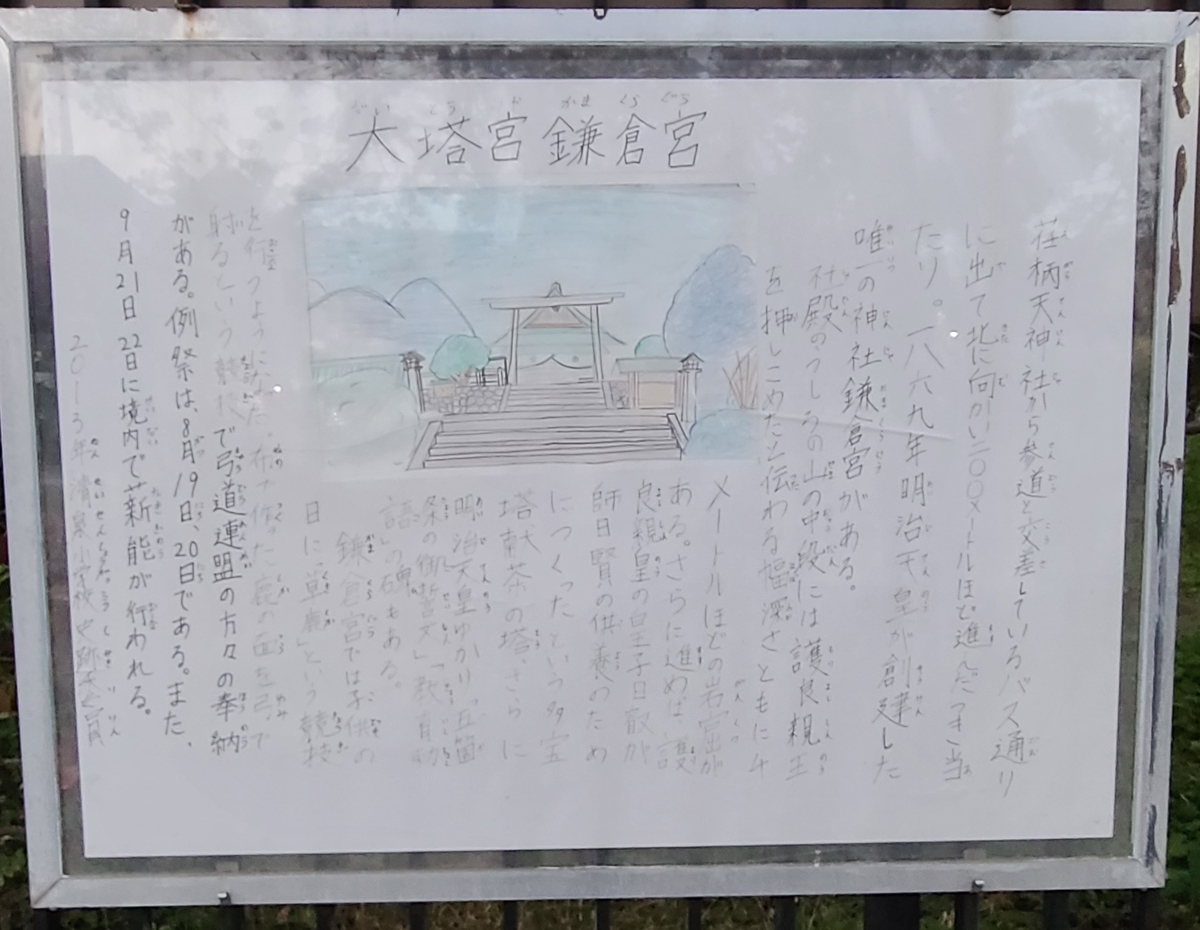 大塔宮鎌倉宮
荏柄天神社から参道と交差しているバス通り
に出て北に向かい二〇〇メートルほど進んだつき当
たり。一八六九年明治天皇が創建した
唯一の神社鎌倉宮がある。
社殿のうしろの山の中段には護良親王
を押しこめたと伝わる幅深さともに4
メートルほどの岩窟が
ある。さらに進めば、護
良親皇の皇王子日叡が
師日賢の供養のため
につくったという多宝
塔献茶の塔、さらに
明治天皇ゆかり「五箇
条の御誓文」「教育勅
語」の碑もある。
鎌倉宮では子供の
日に「草鹿」という競技
を催すようになった。布で作った鹿の面を弓で
射るという競技で弓道連盟の方々の奉納
がある。例祭は、8月19日、20日である。また、
9月21日22日に境内で薪能が行われる。
清泉小学校史跡委員